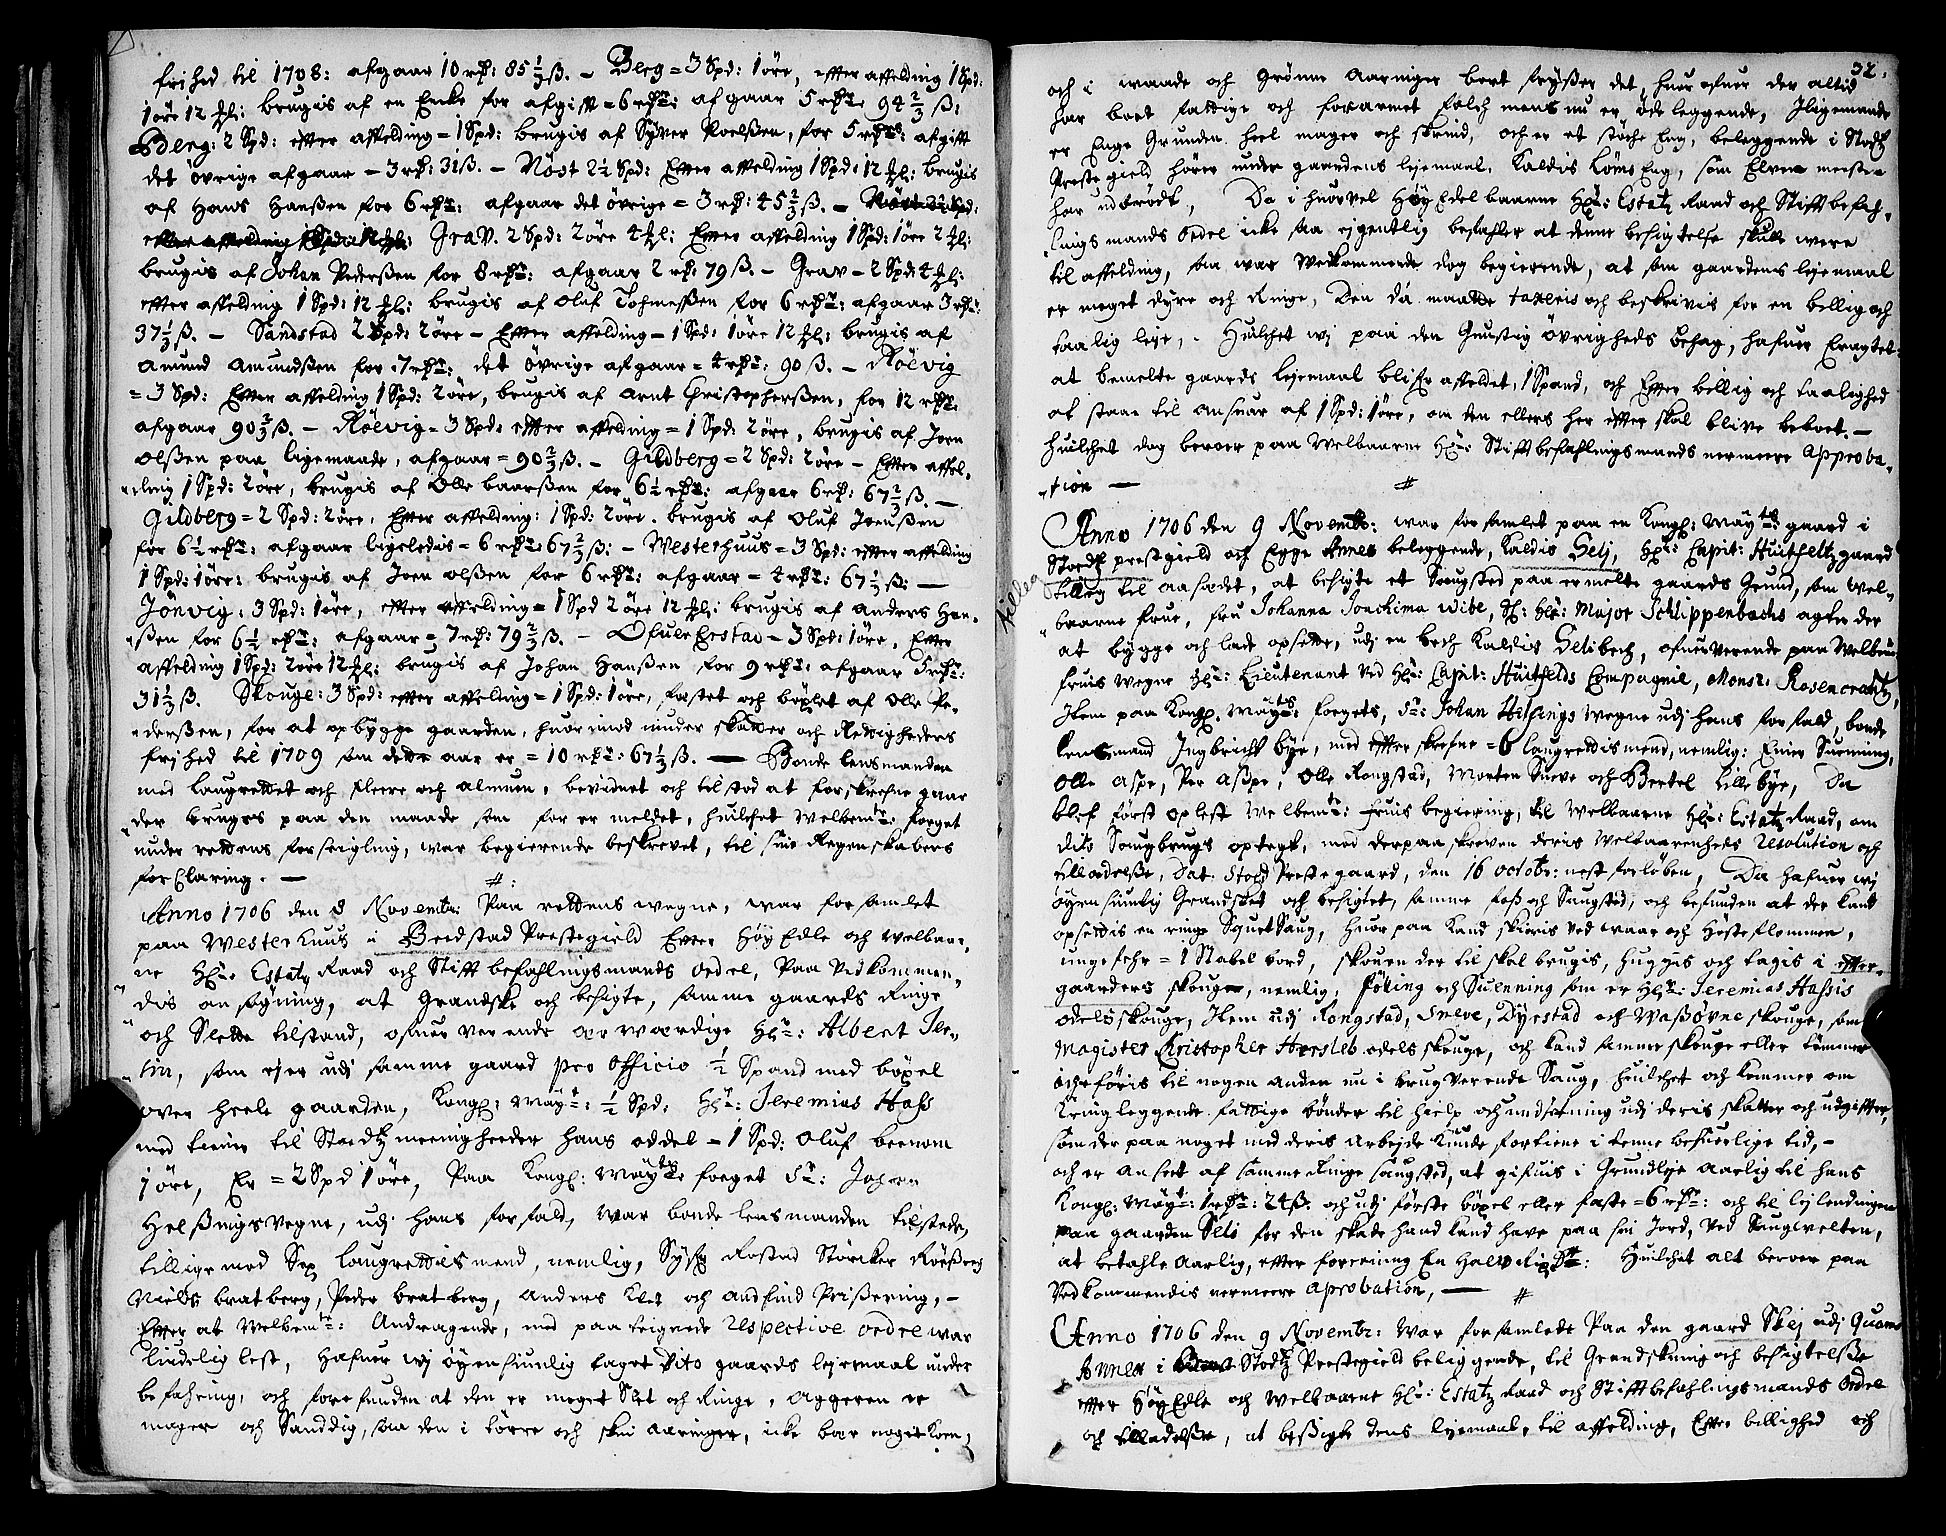 frihed til 1708: afgaar 10 rdr: 85 1/3 ß. – Berg = 3 Spd: 1 öre, effter affelding 1 Spd:
1 öre 12 ℔l: brugis af en Encke for afgifft = 6 rdr: afgaar 5 rdr: 94 2/3 ß:
Berg: 2 Spd: effter affelding = 1 Spd: brugis af Syver Poelßen, for 5 rdr: afgifft
det övrige afgaar – 3 rdr: 31 ß. – Nöst 2½ Spd: Effter affelding 1 Spd: 12 ℔l: brugis
af Hans Hanßen for 6 rdr: afgaar det övrige = 3 rdr: 45 2/3 ß. –
Grav. 2 Spd: 2 öre 4 ℔l: Effter affelding 1 Spd: 1 öre 2 ℔l:
brugis af Johan Pederßen for 8 rdr: afgaar 2 rdr: 79 ß. – Grav – 2 Spd: 4 ℔l:
effter affelding 1 Spd: 12 ℔l: brugis af Oluf Tohmeßen for 6 rdr: afgaar 3 rdr:
37 1/3 ß. – Sandstad 2 Spd: 2 öre – Effter affelding – 1 Spd: 1 öre 12 ℔l: brugis af
Amund Amundßen for 7 rdr: det övrige afgaar = 4 rdr: 90 ß. – Röevig
= 3 Spd: Effter affelding 1 Spd: 2 öre, brugis af Arnt Christopherßen, for 12 rdr:
afgaar 90 2/3 ß. – Röevig = 3 Spd: effter affelding = 1 Spd: 2 öre, brugis af Joen
Olßen paa ligemaade, afgaar = 90 2/3 ß. – Gildberg = 2 Spd: 2 öre – Effter affel-
ding 1 Spd: 2 öre, brugis af Olle Baarßen for 6½ rdr: afgaar 6 rdr: 67 2/3 ß. –
Gildberg = 2 Spd: 2 öre, Effter affelding: 1 Spd: 2 öre. brugis af Oluf Joenßen
for 6½ rdr: afgaar ligeledis = 6 rdr: 67 2/3 ß: – Westerhuus = 3 Spd: effter affelding
1 Spd: 1 öre: brugis af Joen Olßen for 6 rdr: afgaar = 4 rdr: 67 1/3 ß: –
Jönvig: 3 Spd: 1 öre, effter affelding = 1 Spd 2 öre 12 ℔l: brugis af Anders Han-
ßen for 6½ rdr: afgaar = 7 rdr: 79 2/3 ß. – Ofuer Erstad – 3 Spd: 1 öre, Effter
affelding 1 Spd: 2 öre 12 ℔l: brugis af Johan Hanßen for 9 rdr: afgaar 5 rdr:
31 1/3 ß. Skouge: 3 Spd: effter affelding = 1 Spd: 1 öre, fæstet och böxlet af Olle Pe-
derßen, for at opbygge gaarden, huorimod nüder skatter och Rettigheders
frihed til 1709 som dette aar er = 10 rdr: 67 1/3 ß. – Bonde lensmanden
med Laugrettet och fleere och almuen, bevidnet och tilstod at forskrefne gaar
der bruges paa den maade som for er meldet, huilchet Welbemte: foeget
under rettens forseigling, war begierende beskrevet, til sine Regenskabers
forClaring. –
#:
Anno 1706 den 8 Novembr: Paa rettens wegne, war forsamlet
paa Westerhuus i Beedstad Prestegield Effter Höy Edle och Welbaar-
ne Hr: Estatz Raad och Stifftbefahlingsmands ordel, Paa vedkommen-
dis ansögning, at Grandske och besigte, samme gaards Ringe
och Slette tilstand, ofuerverende ærværdige Hr: Albert
som ejer udj samme gaard pro officio ½ Spand med böxel
over heele gaarden, Kongl: Mayts: ½ Spd: Hr: Jeremias Hass
til Stoedtz meenigheeder hans oddel – 1 Spd: Oluf
1 öre, Er = 2 Spd 1 öre, Paa Kongl: Mayts: foeget Sr: Johan
Helßings vegne, udj hans forfald, war bonde lensmanden tilstede,
tillige med Sex laugrettesmend, nemlig, Rostad Störcker
Niels Bratberg, Peder Bratberg, Anders och Andfind Prißering, –
Effter at Welbemte: Andragende, med paategnede respective ordre war
tüdelig lest, Hafuer wj öyensiunlig taget Dito gaards lejemaal under
befahring, och forefunden at den er meget Slet och Ringe, Aggeren er
mager och Sanddig, saa den i törre och skin aaringer, icke bær noget Korn,
32.
och i waade och Grönne aaringer bort frysser det, huor ofuer der altid
har boet fattige och forarmet folch mens nu er öde leggende, Iligemaade
er Enge Grunden heel mager och skrind, och er et stöche Eng, beleggende i Stodtz
Prestegield hörer under gaardens lejemaal, Kaldis Löms Eng, som Elven meesten
har udbrödt, Da ihuorvel Höy Edelbaarne Hr: Estatz Raad och Stifftbefah-
lings mands ordel icke saa eigentlig befahler at denne besigtelse skulle were
til affelding, saa war Vedkommende dog begierende, at som gaardens lejemaal
er meget dyre och Ringe, Den da maatte taxeris och beskrivis for en billig och
taalig leje, – Huilchet wj paa den Gunstig övrigheds behag, hafuer Eragtet
at bemelte gaards lejemaal blifr affeldet, 1 Spand, och Effter billig och taalighed
at staae til ansuar af 1 Spd: 1 öre, om den ellers her effter skal blive beboet. –
huilchet dog beroer paa Welbaarne Hr: Stifftbefahlingsmands nermeere Approba-
tion – #
Anno 1706 den 9 Novembr: war forsamlet paa en Kongl: Mayts: gaard i
Stoedtz prestegield och Egge Annex beleggende, Kaldis Selj, Hr: Capit: Huitfeltz gaard
tillagt til aasædet, at besigte et Saugsted paa ermelte gaards Grund, som wel-
baarne frue, fru Johanna Joachima Wibe, Sl: Hr: Major Schlippenbachs agter der
at bygge och lade opsette, udj en bech Kaldis Selibech, ofuerverende paa Welbem:
fruis wegne Hr: Lieutenant ved Hr: Capit: Huitfelds Compagnie, Monsr: Rosencrantz,
Item paa Kongl. Mayts: foegets, Sr: Johan Helßings wegne udj hans forfald, bonde
lensmand Ingbricht bye, med effterskrefne = 6 laugrettismend, nemlig: Einer Suenning,
Olle Aspe, Per Aspe, Olle Rongstad, Morten Sneve och Bertel lille bye, Da
blef först oplest Welbemte: Fruis begiering, til Welbaarne Hr: Estatz Raad, om
dito Saugbrugs optegt, med derpaa skreven deris Welbaarenheds resolution och
tilladelße, Dat: Stoed Prestegaard, den 16 octobr: nest forleben, Da hafuer wj
öyensiunlig Grandsket och besigtet, samme foß och Saugsted, och befunden at der kand
opsettis en ringe SquetSaug, huor paa Kand skieris ved waar och Höste flommen,
ungefehr = 1 Stabel bord, skouen der til skal brugis, huggis och tagis i effter-
gaarders skouge, nemlig, Föling och Suenning som er Hr: Jeremias Hassis
odels skouge, Item udj Rongstad, Sneve, Dyrstad och Waßövne skouge, som
Magister Christopher Hersleb odels skouge, och kand samme skouge eller tömmer
iche föris til nogen anden nu i brug verende Saug, huilchet och kommer om
Kring leggende fattige bönder til hielp och undsetning udj deris skatter och udgiffter,
som der paa noget med deris arbejde kunde fortiene i denne besuerlige tid, –
och er anseet af samme Ringe saugsted, at gifuis i Grundleje aarlig til Hans
Kongl: Mayt: 1 rdr: 24 ß: och udj förste böxel eller fæste = 6 rdr: och til lejlendingen
paa gaarden Seli for den skade hand kand have paa sin Jord, ved Saugwelten,
at betahle Aarlig, effter forening En Halv Rixdr: Huilchet alt beroer paa
Vedkommendis nermeere aprobation, – #
Anno 1706 den 9 Novembr: War forsamlede Paa den gaard Skej udj Quams
Annex i Stodtz Prestegield beliggende, til Grandskning och besigtelße
effter Höy Edle och Welbaarne Hr: Estatz Raad och Stifftbefahlingsmands Ordel
och tilladelße, at beßigte dens lejemaal, til affelding, Effter billighed och